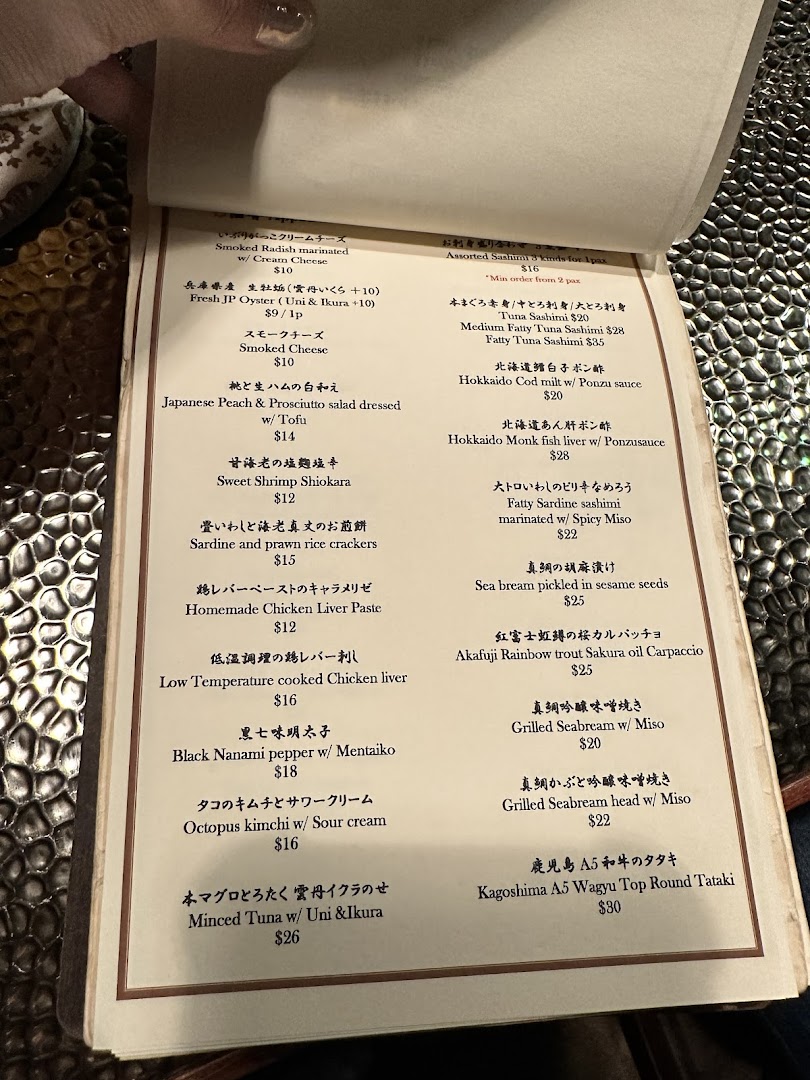 いぶりがっこクリームチーズ
Smoked Radish marinated
w/ Cream Cheese
$10
兵庫県産 生牡蛎(雲丹いくら +10)
Fresh JP Oyster ( Uni & Ikura +10)
$9 / 1p
スモークチーズ
Smoked Cheese
$10
桃と生ハムの白和え
Japanese Peach & Prosciutto salad dressed
w/ Tofu
$14
甘海老の塩麹塩辛
Sweet Shrimp Shiokara
$12
畳いわしと海老真丈のお煎餅
Sardine and prawn rice crackers
$15
鶏レバーペーストのキャラメリゼ
Homemade Chicken Liver Paste
$12
低温調理の鶏レバー刺し
Low Temperature cooked Chicken liver
$16
黒七味明太子
Black Nanami pepper w/ Mentaiko
$18
タコのキムチとサワークリーム
Octopus kimchi w/ Sour cream
$16
本マグロとろたく雲丹イクラのせ
Minced Tuna w/ Uni &Ikura
$26
お刺身盛り合わせ
Assorted Sashimi 3 kinds for 1pax
$16
*Min order from 2 pax
本まぐろ赤身/中とろ刺身/大とろ刺身
Tuna Sashimi $20
Medium Fatty Tuna Sashimi $28
Fatty Tuna Sashimi $35
北海道鱈白子ポン酢
Hokkaido Cod milt w/ Ponzu sauce
$20
北海道あん肝ポン酢
Hokkaido Monk fish liver w/ Ponzusauce
$28
大トロいわしのピリ辛なめろう
Fatty Sardine sashimi
marinated w/ Spicy Miso
$22
真鯛の胡麻漬け
Sea bream pickled in sesame seeds
$25
紅富士虹鱒の桜カルパッチョ
Akafuji Rainbow trout Sakura oil Carpaccio
$25
真鯛吟醸味噌焼き
Grilled Seabream w/ Miso
$20
真鯛かぶと吟醸味噌焼き
Grilled Seabream head w/ Miso
$22
鹿児島 A5 和牛のタタキ
Kagoshima A5 Wagyu Top Round Tataki
$30